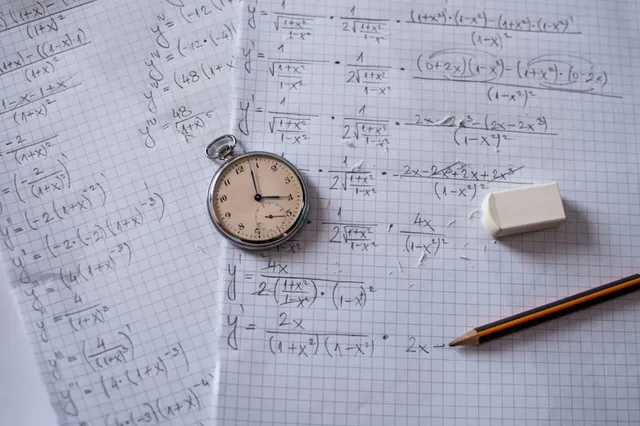 (1+x)²
1-x-1+x
(1+x)²
-2
(1+x)²
(-2/(1+x)²)'
y''=(-2(1+x)⁻²)'
y''=(-2·(-2)(1+x)⁻³)
y''=(4(1+x)⁻³)
y''=4/(1+x)³
y'''=(4/(1+x)³)'
y'''=(4·(1+x)⁻³)
(-3)(1+x)⁻⁴
y'''=(-12·(-4)
y'''=(48(1+x)
y'''=48/(1+x)⁵
y'=1/√((1+x²)/(1-x²)) · 1/(2√((1+x²)/(1-x²))) · ((1+x²)'·(1-x²)-(1+x²)·(1-x²)')/(1-x)²
y'=1/√((1+x²)/(1-x²)) · 1/(2√((1+x²)/(1-x²))) · ((0+2x)(1-x²)-(1+x²)·(0-2x))/(1-x²)²
y'=1/√((1+x²)/(1-x²)) · 1/(2√((1+x²)/(1-x²))) · (2x-2x³-(2x-2x³)/(1-x²)²
· 1/(2√((1+x²)/(1-x²))) · (2x-2x³+2x+2x³)/(1-x²)²
· 1/(2√((1+x²)/(1-x²))) · 4x/(1-x²)²
y'=4x/(2((1+x²)/(1-x²))·(1-x²)²)
y'=2x/((1+x²)(1-x²)) · 2x-
12
1
2
3
4
5
6
7
8
9
10
11